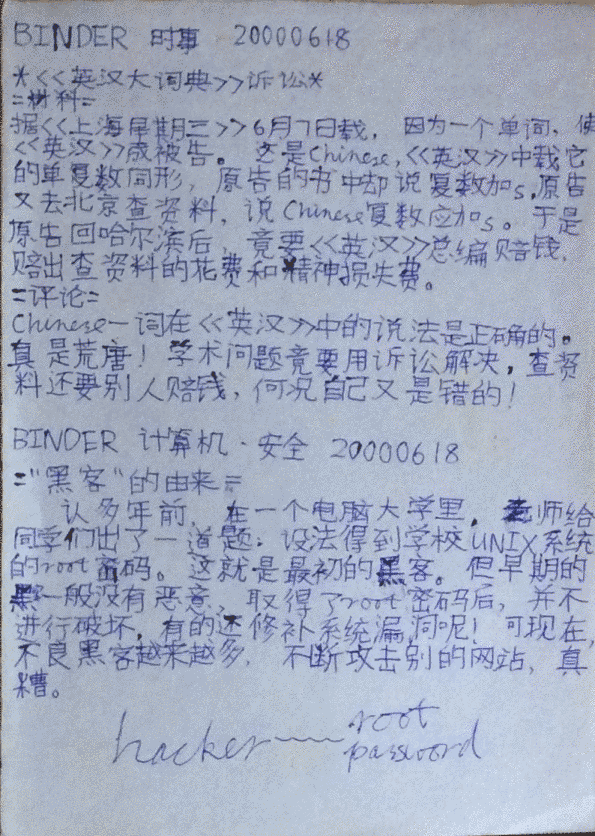 BINDER 时事 20000618
*<<英汉大词典>>诉讼*
=材料=
据<<上海星期三>>6月7日载,因为一个单词、使
<<英汉>>成被告。这是Chinese,<<英汉>>中载它
的单复数同形,原告的书中却说复数加s,原告
又去北京查资料,说Chinese复数应加s。于是
原告回哈尔滨后,竟要<<英汉>>总编赔钱,
赔出查资料的花费和精神损失费。
=评论=
Chinese一词在<<英汉>>中的说法是正确的。
真是荒唐!学术问题竟要用诉讼解决,查资
料还要别人赔钱,何况自己又是错的!
BINDER 计算机·安全 20000618
="黑客"的由来=
许多年前,在一个电脑大学里,老师给
同学们出了一道题:设法得到学校UNIX系统
的root密码。这就是最初的黑客。但早期的
黑一般没有恶意,取得了root密码后,并不
进行破坏,有的还修补系统漏洞呢!可现在,
不良黑客越来越多,不断攻击别的网站,真
糟。
hacker——root
password